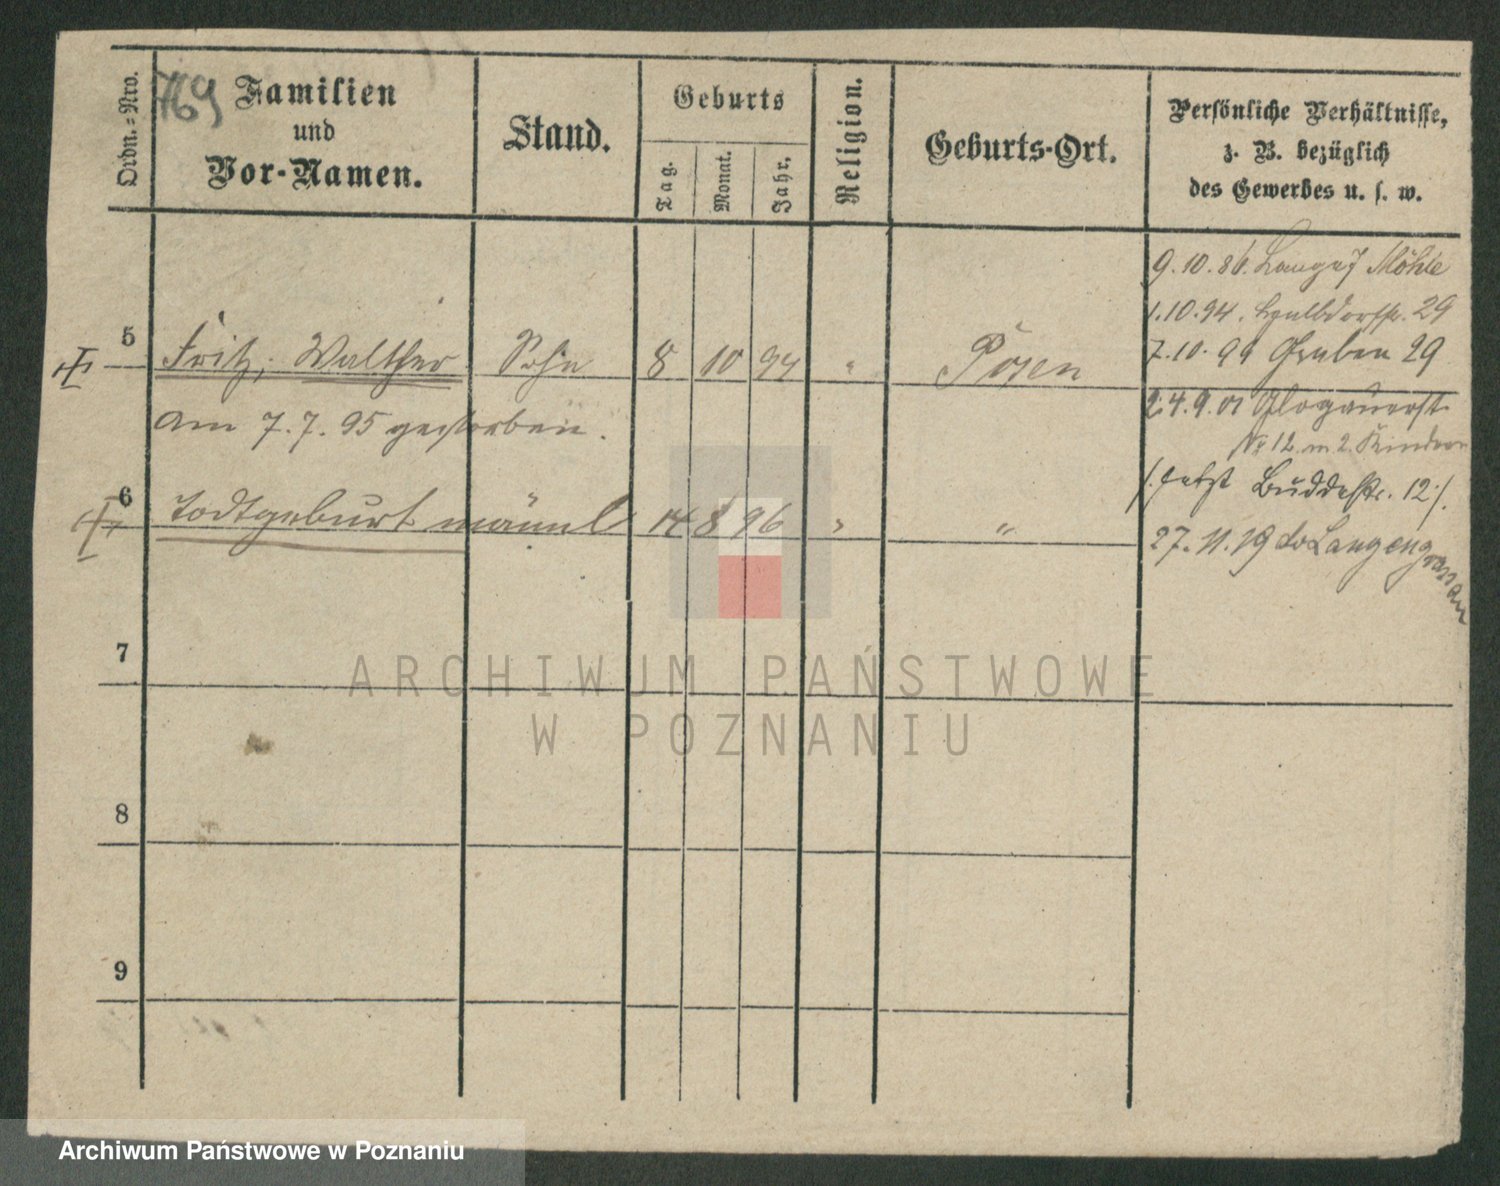 769
Ordn.=Nro.
Familien
und
Vor-Namen.
Stand.
Geburts
Tag.
Monat.
Jahr.
Religion.
Geburts-Ort.
Persönliche Verhältnisse,
z. B. bezüglich
des Gewerbes u. s. w.
9.10.86. Möhle
1.10.94. 29
5 Fritz, Walther Sohn 8 10 94 " Posen
7.10.99 Graben 29
am 7.7.95 gestorben.
24.9.01 Glogauerst
No 12 m 2 Kindern
6 Todtgeburt männl 14 8 96 " "
/. jetzt Buddestr. 12 /.
27.11.19
7
8
9
ARCHIWUM PAŃSTWOWE
W POZNANIU
Archiwum Państwowe w Poznaniu